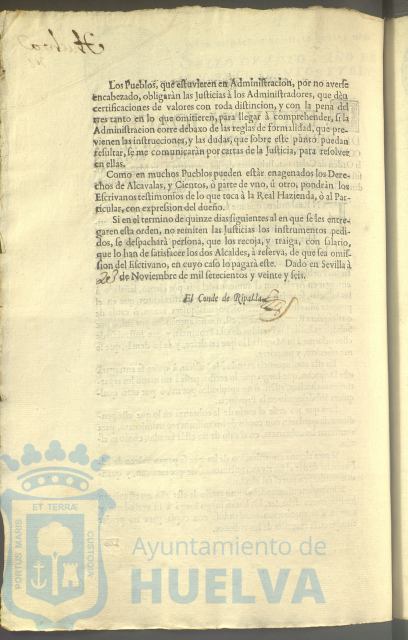 Los Pueblos, que estuvieren en Administracion, por no averse
encabezado, obligaràn las Justicias à los Administradores, que dèn
certificaciones de valores con toda distincion, y con la pena del
tres tanto en lo que omitieren, para llegar à comprehender, si la
Administracion corre debaxo de las reglas de formalidad, que pre-
vienen las instrucciones, y las dudas, que sobre este punto puedan
resultar, se me comunicaràn por cartas de la Justicia, para resolver
en ellas.
Como en muchos Pueblos pueden estàr enagenados los Dere-
chos de Alcavalas, y Cientos, ò parte de vno, ù otro, pondràn los
Escrivanos testimonios de lo que toca à la Real Hazienda, ò al Par-
ticular, con expression del dueño.
Si en el termino de quinze dias siguientes al en que se les entre-
garen esta orden, no remiten las Justicias los instrumentos pedi-
dos, se despacharà persona, que los recoja, y traiga, con salario,
que lo han de satisfacer los dos Alcaldes, à reserva, de que sea omis-
sion del Escrivano, en cuyo caso lo pagarà este. Dado en Sevilla à
28 de Noviembre de mil setecientos y veinte y seis.
El Conde de Ripalda
PORTUS MARIS
ET TERRÆ
CUSTODIA
Ayuntamiento de
HUELVA